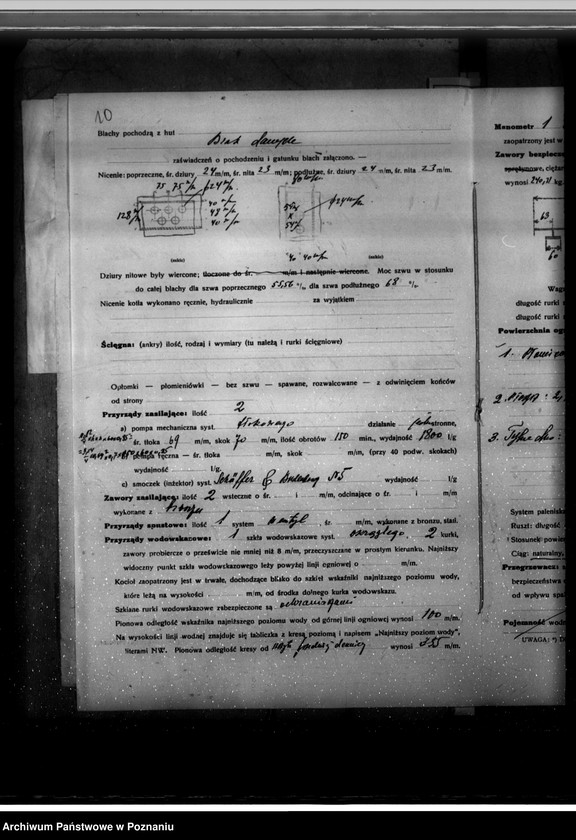 10
Blachy pochodzą z hut
zaświadczeń o pochodzeniu i gatunku blach załączono. —
Nicenie: poprzeczne, śr. dziury 24 m/m, śr. nita 23 m/m; podłużne, śr. dziury 24 m/m, śr. nita 23 m/m.
75 75 m/m ϕ 24 m/m
128 m/m
40 m/m
48 m/m
40 m/m
80 m/m
ϕ 24 m/m
40 40 m/m
(szkic) (szkic)
Dziury nitowe były wiercone; tłoczone do śr. m/m i następnie wiercone. Moc szwu w stosunku
do całej blachy dla szwu poprzecznego 55,56 % dla szwa podłużnego 68 %
Nicenie kotła wykonano ręcznie, hydraulicznie za wyjątkiem
Ścięgna: (ankry) ilość, rodzaj i wymiary (tu należą i rurki ścięgniowe)
Opłomki — płomieniówki — bez szwu — spawane, rozwalcowane — z odwinięciem końców
od strony
Przyrządy zasilające: ilość 2
a) pompa mechaniczna syst. działanie stronne,
śr. tłoka 69 m/m, skok 70 m/m, ilość obrotów 150 min., wydajność 1800 l/g
b) pompa ręczna — śr. tłoka m/m, skok m/m, (przy 40 podw. skokach)
wydajność l/g.
c) smoczek (inżektor) syst. Schäffer & Budenberg N5 wydajność l/g
Zawory zasilające: ilość 2 wsteczne o śr. i m/m, odcinające o śr. i m/m
wykonane z bronzu
Przyrządy spustowe: ilość 1 system wentyl, śr. m/m, wykonane z bronzu, stali.
Przyrządy wodowskazowe: 1 szkła wodowskazowe syst. okrągłego, 2 kurki,
zawory probiercze o prześwicie nie mniej niż 8 m/m, przeczyszczane w prostym kierunku. Najniższy
widoczny punkt szkła wodowskazowego leży powyżej linji ogniowej o m/m.
Kocioł zaopatrzony jest w trwałe, dochodzące blisko do szkieł wskaźniki najniższego poziomu wody,
które leżą na wysokości m/m, od środka dolnego kurka wodowskazu.
Szklane rurki wodowskazowe zabezpieczone są ochraniaczami
Pionowa odległość wskaźnika najniższego poziomu wody od górnej linji ogniowej wynosi 100 m/m.
Na wysokości linji wodnej znajduje się tabliczka z kresą poziomą i napisem „Najniższy poziom wody",
literami NW. Pionowa odległość kresy od wynosi m/m.
Manometr 1
zaopatrzony jest w
Zawory bezpiecze
sprężynowe, ciężar
wynosi kg.
63
60
Wag
długość rurki
długość rurki
Powierzchnia og
1.
2.
3.
System palenisk
Ruszt: długość
Ciąg: naturalny,
Przegrzewacz:
bezpieczeństwa
od wpływu spal
Pojemność wodn
UWAGA: *) D
Archiwum Państwowe w Poznaniu